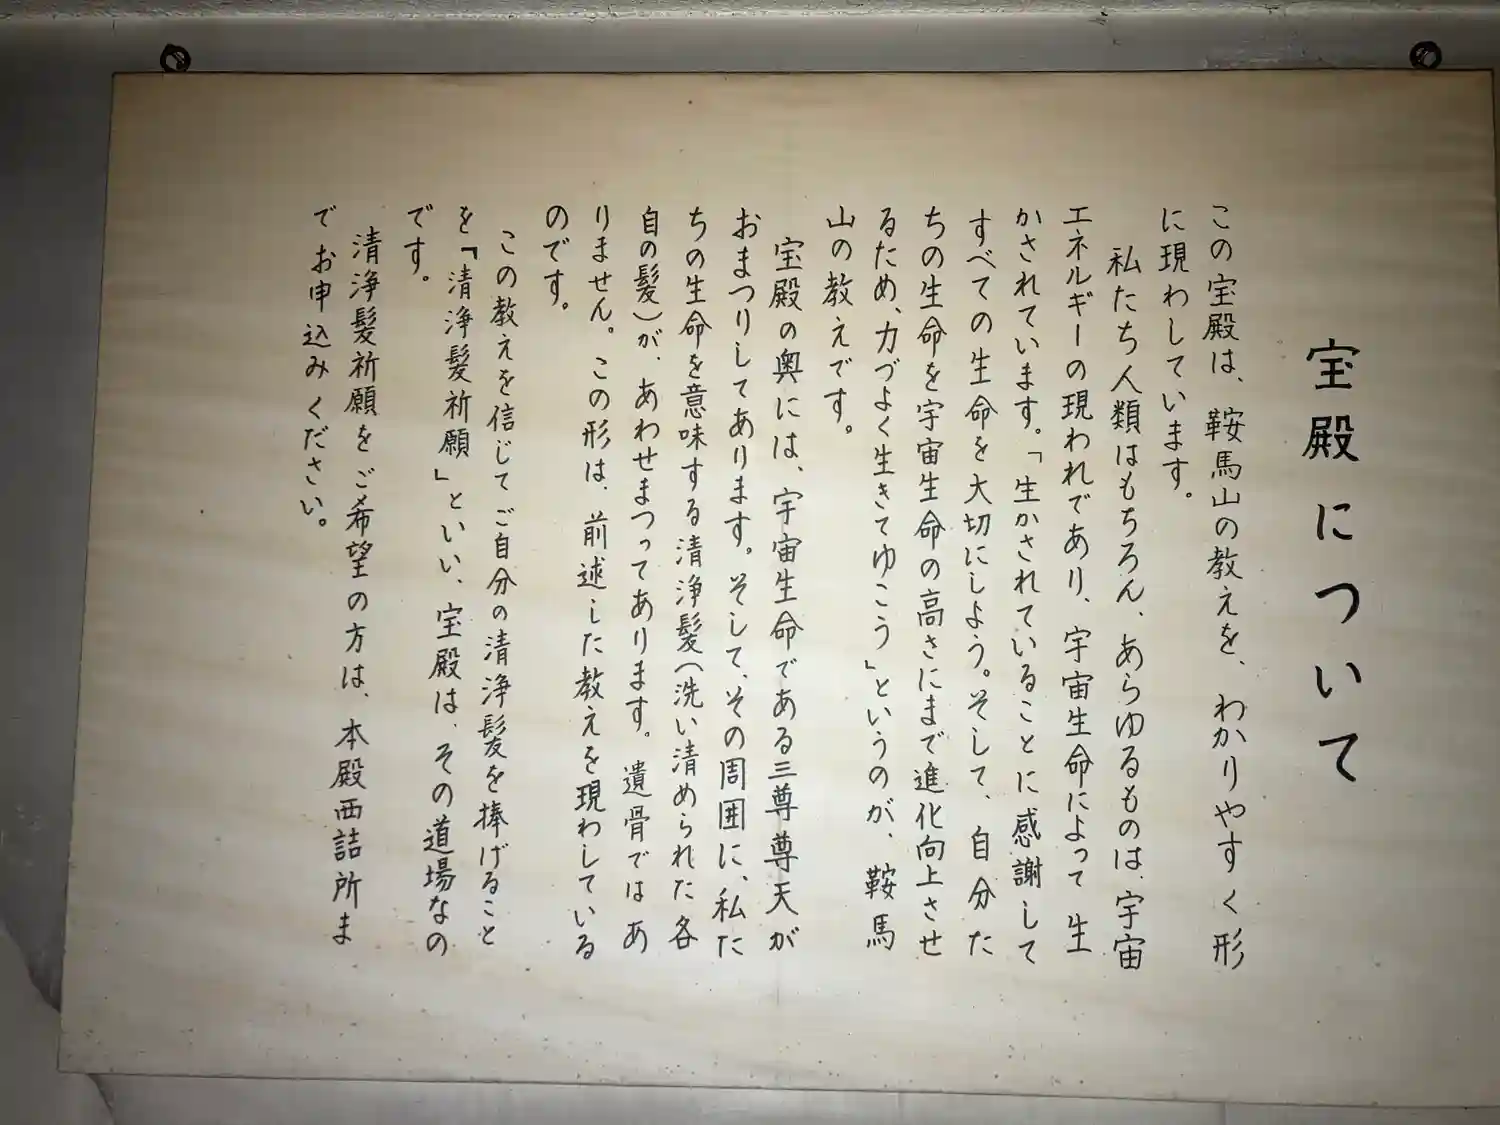 宝殿について
この宝殿は、鞍馬山の教えを、わかりやすく形
に現わしています。
私たち人類はもちろん、あらゆるものは、宇宙
エネルギーの現われであり、宇宙生命によって生
かされています。「生かされていることに感謝して
すべての生命を大切にしよう。そして、自分た
ちの生命を宇宙生命の高さにまで進化向上させ
るため、力づよく生きてゆこう」というのが、鞍馬
山の教えです。
宝殿の奥には、宇宙生命である三尊尊天が
おまつりしてあります。そして、その周囲に、私た
ちの生命を意味する清浄髪（洗い清められた各
自の髪）が、あわせまつってあります。遺骨ではあ
りません。この形は、前述した教えを現わしている
のです。
この教えを信じてご自分の清浄髪を捧げること
を「清浄髪祈願」といい、宝殿は、その道場なの
です。
清浄髪祈願をご希望の方は、本殿西詰所ま
でお申込みください。